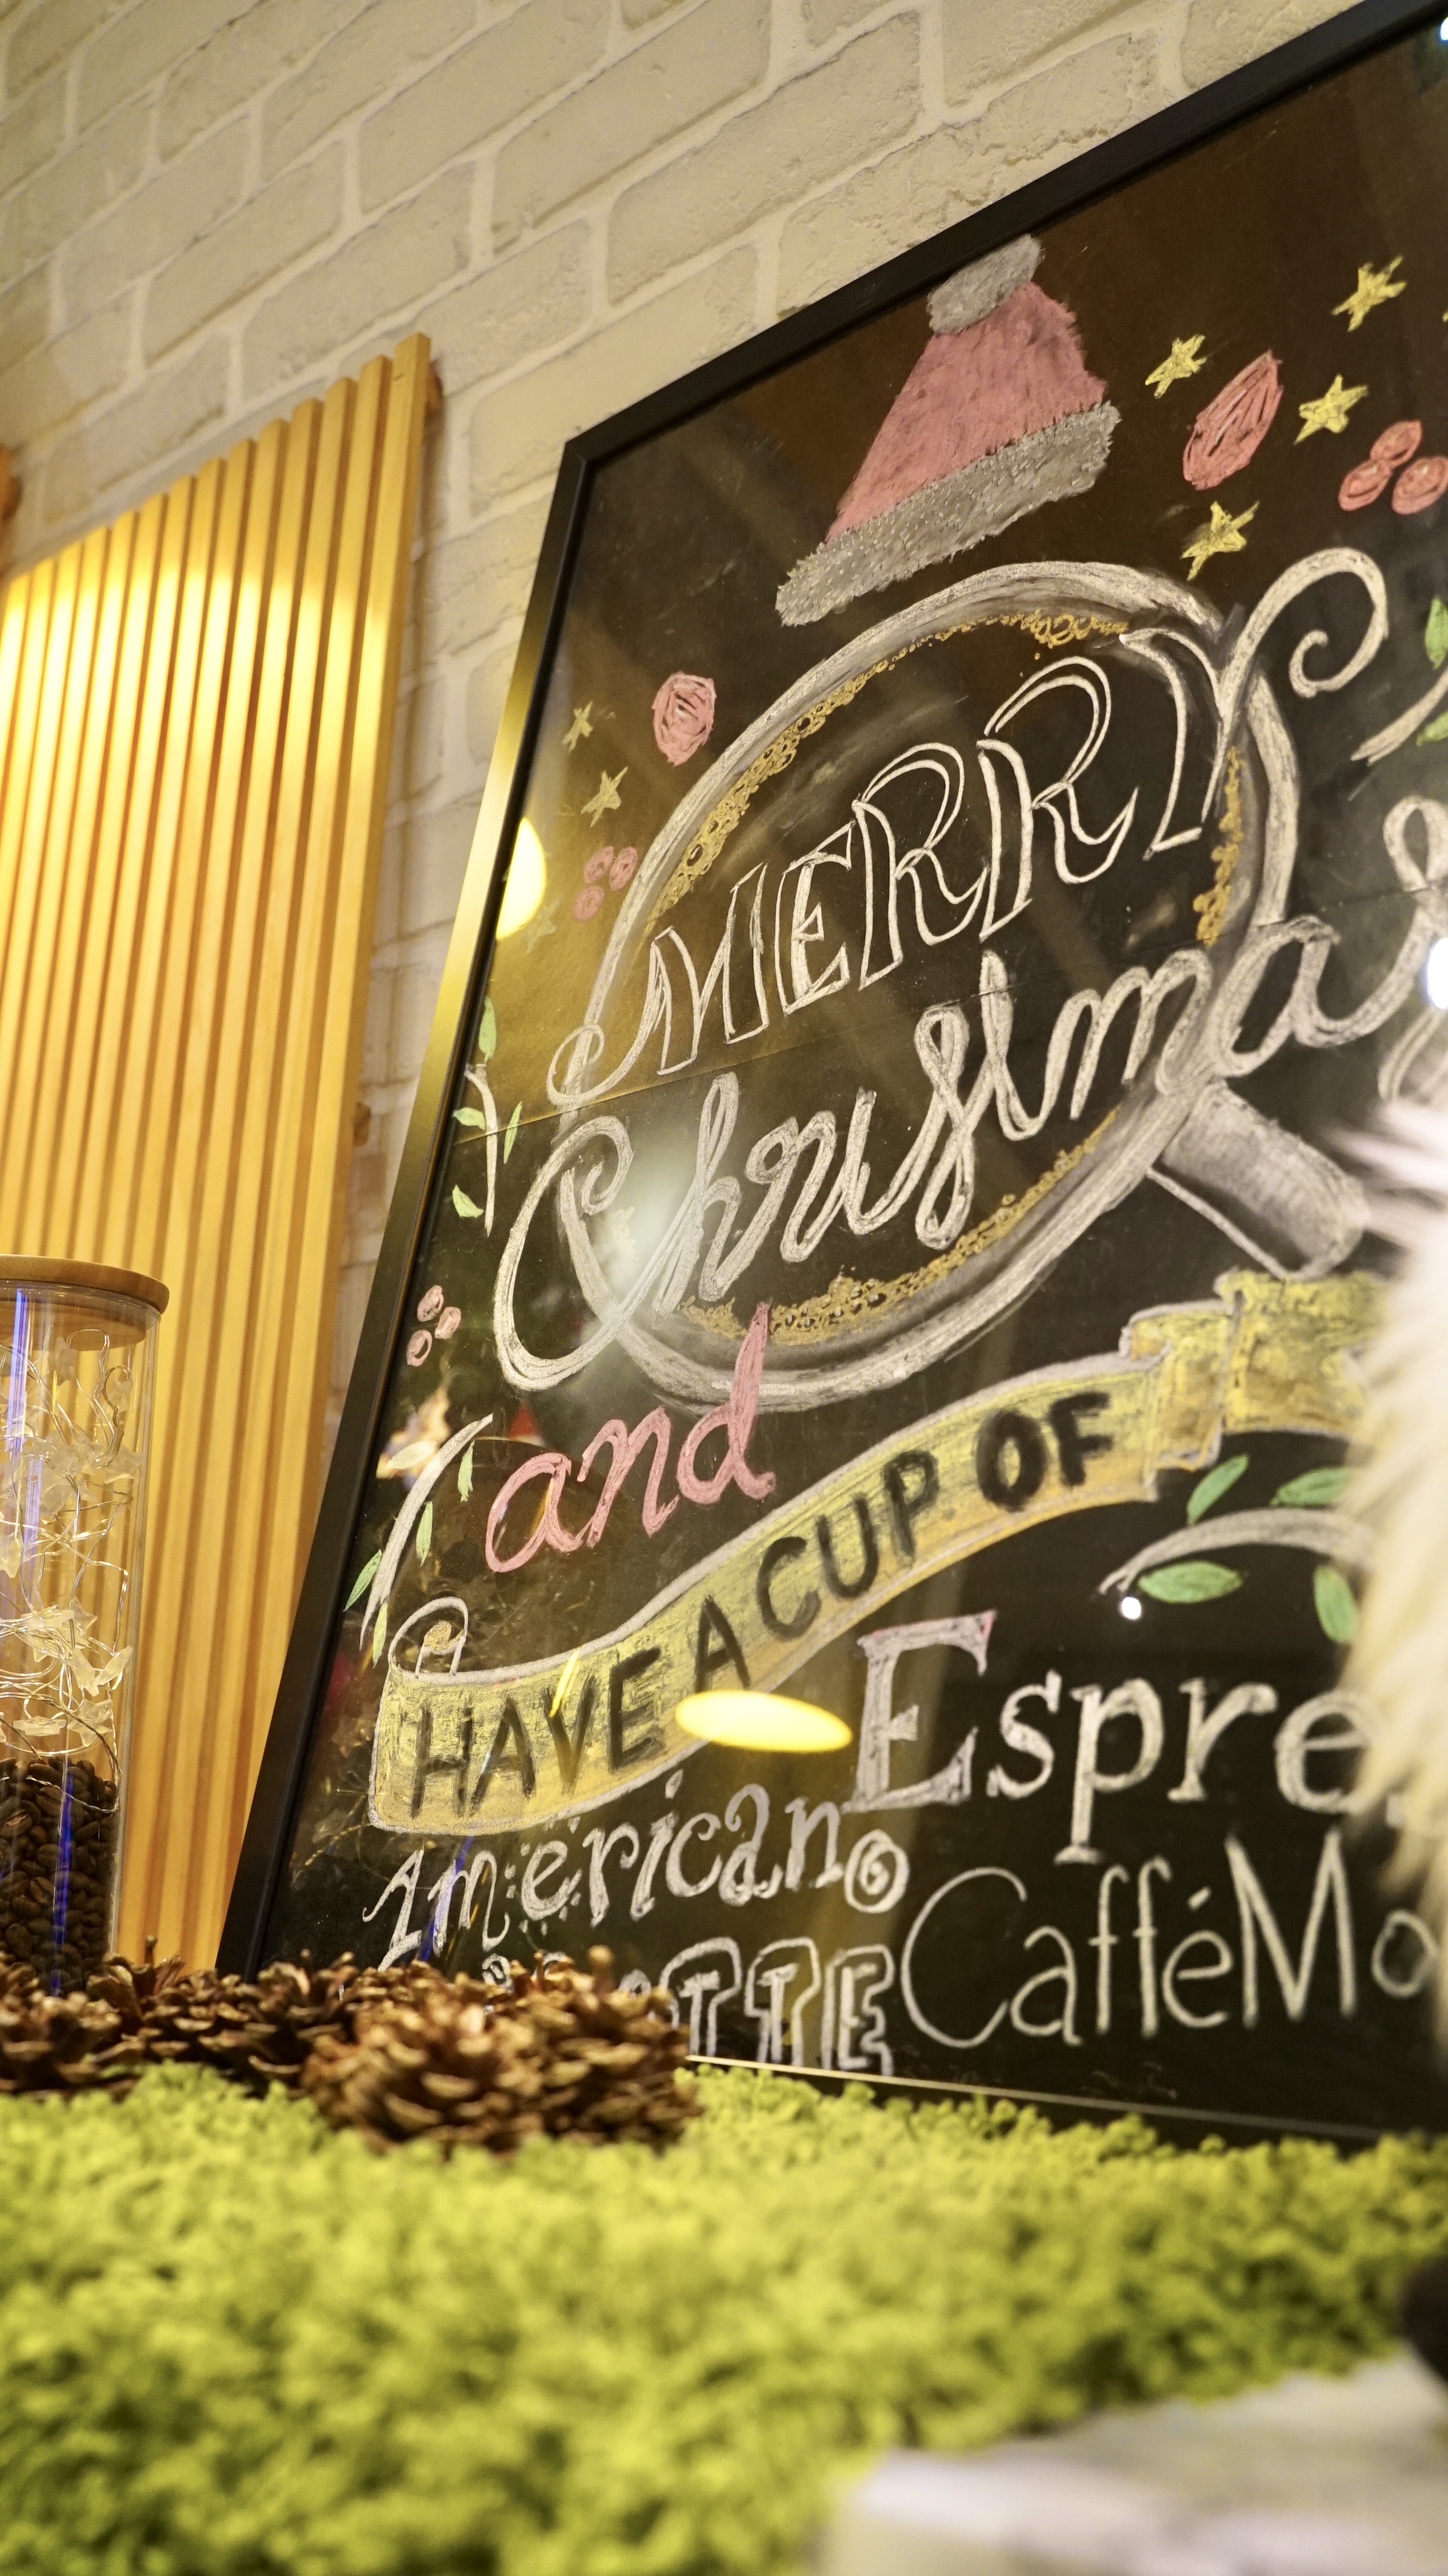 MERRY
Christmas
and
HAVE A CUP OF
Espre
Americano
Caffé Mo
TTE